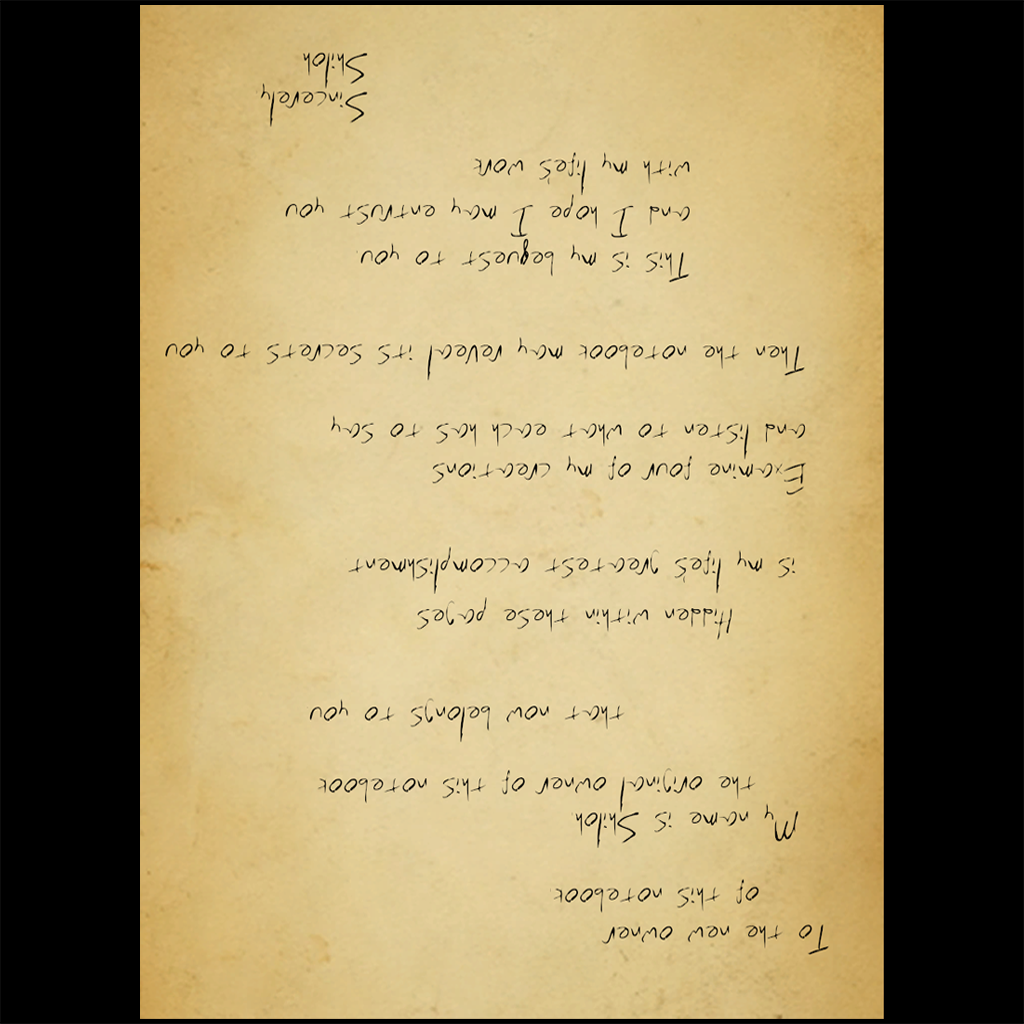 To the new owner
of this notebook
My name is Shiloh
the original owner of this notebook
that now belongs to you
Hidden within these pages
is my life's greatest accomplishment
Examine four of my creations
and listen to what each has to say
Then the notebook may reveal its secrets to you
This is my bequest to you
and I hope I may entrust you
with my life's work
Sincerely
Shiloh